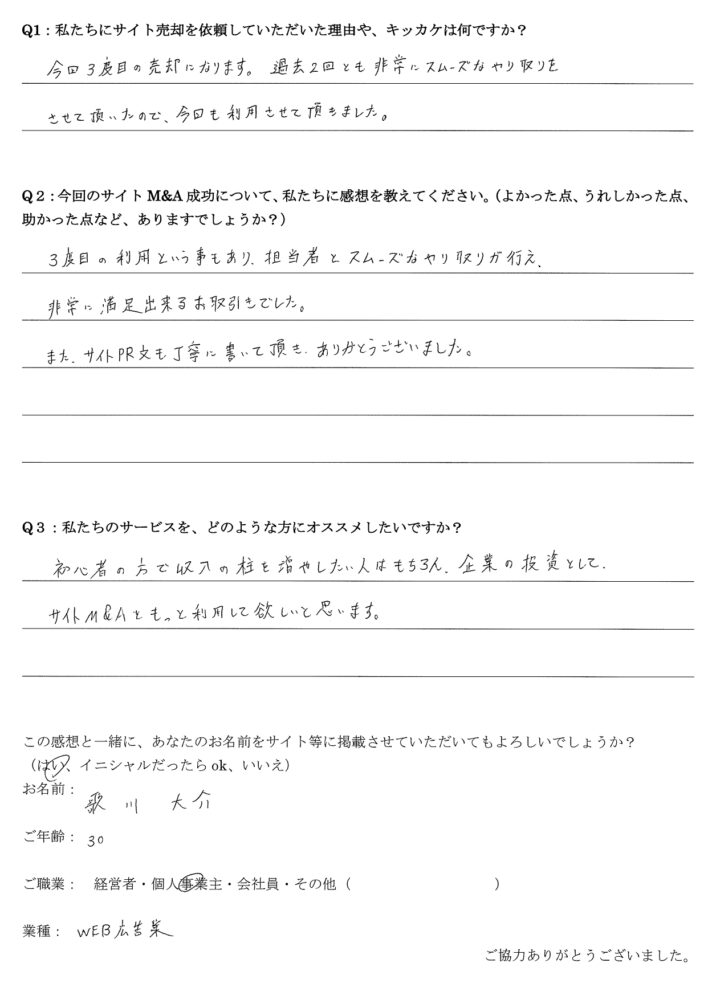 Q1：私たちにサイト売却を依頼していただいた理由や、キッカケは何ですか？
今回3度目の売却になります。過去2回とも非常にスムーズなやり取りを
させて頂いたので、今回も利用させて頂きました。
Q２：今回のサイトM&A成功について、私たちに感想を教えてください。（よかった点、うれしかった点、
助かった点など、ありますでしょうか？）
3度目の利用という事もあり、担当者とスムーズなやり取りが行え、
非常に満足出来るお取引きでした。
また、サイトPR文も丁寧に書いて頂き、ありがとうございました。
Q３：私たちのサービスを、どのような方にオススメしたいですか？
初心者の方で収入の柱を増やしたい人はもちろん、企業の投資として、
サイトM&Aともっと利用して欲しいと思います。
この感想と一緒に、あなたのお名前をサイト等に掲載させていただいてもよろしいでしょうか？
（はい、イニシャルだったらok、いいえ）
お名前：歌川 大介
ご年齢：30
ご職業： 経営者・個人事業主・会社員・その他（ ）
業種：WEB広告業
ご協力ありがとうございました。